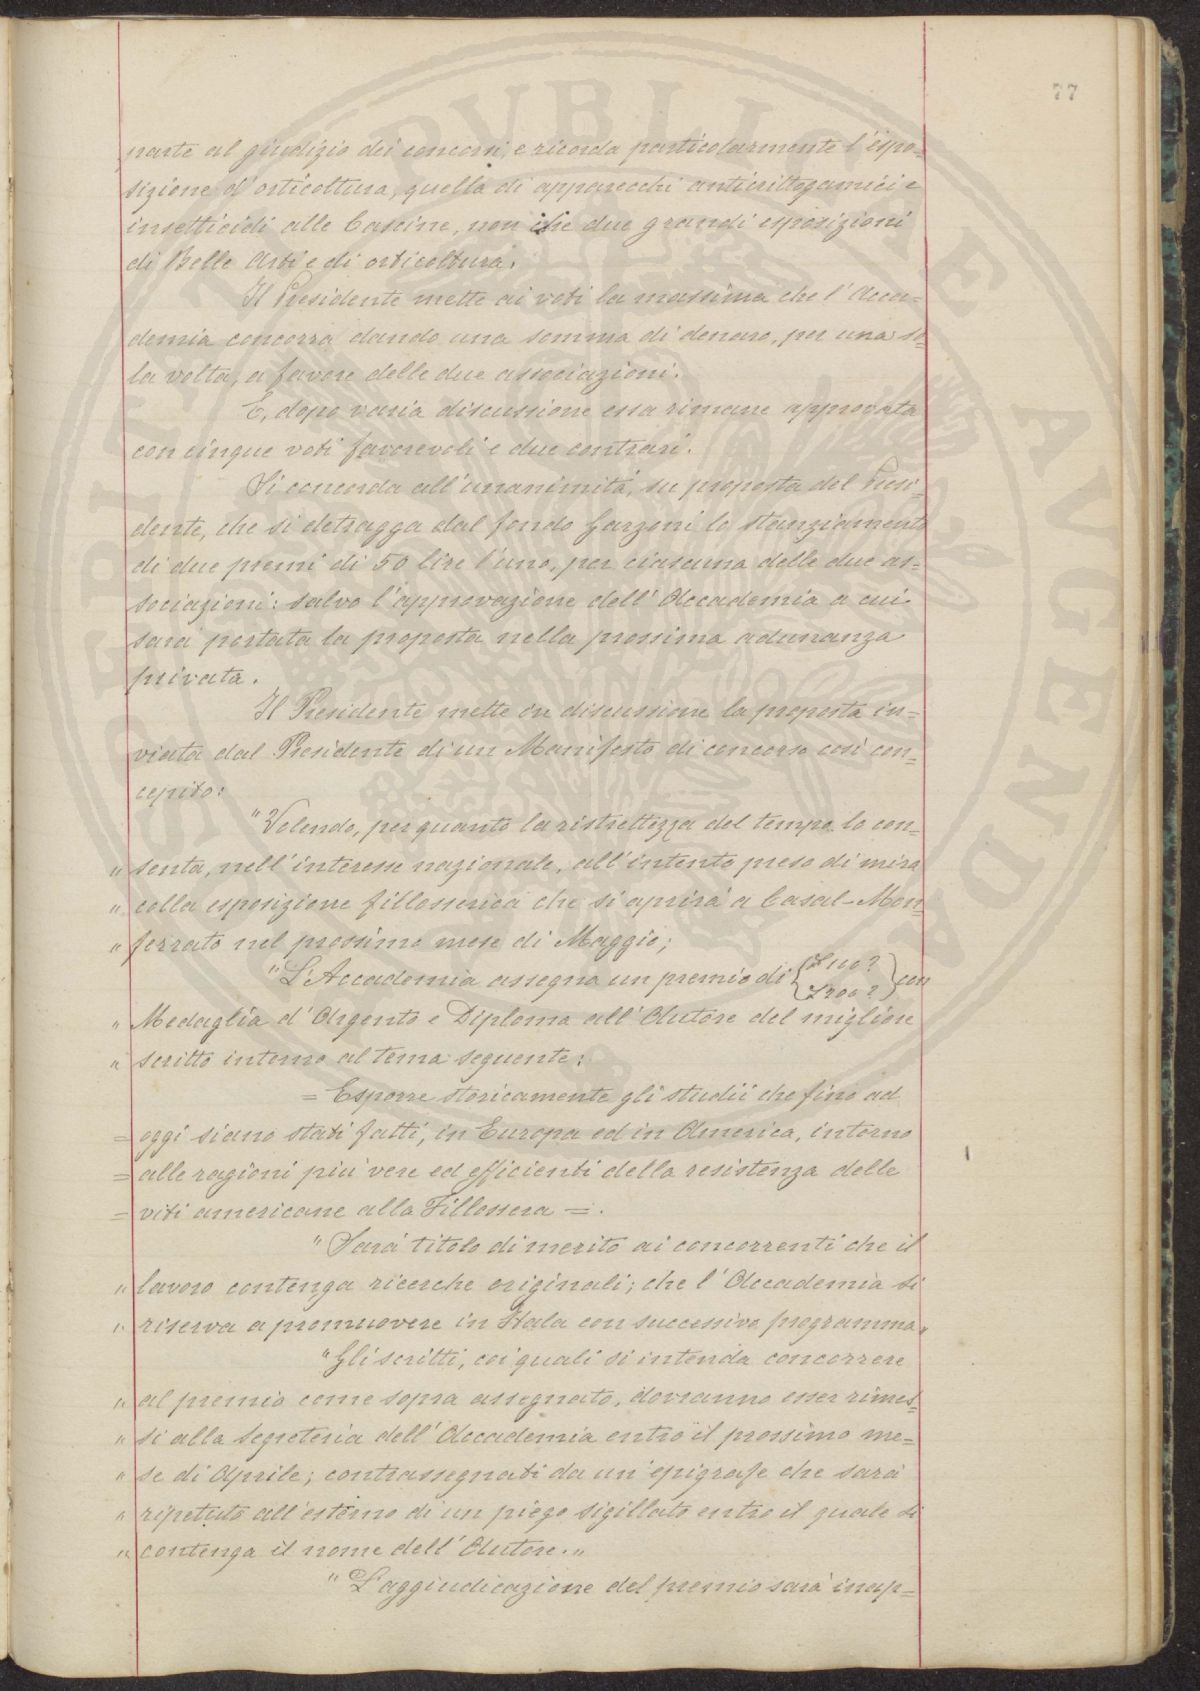 77
parte al giudizio dei concorsi, e ricorda particolarmente l'espo=
sizione d'orticoltura, quella di apparecchi anticrittogamici e
insetticidi alle Cascine, non che due grandi esposizioni
di Belle Arti e di orticoltura.
Il Presidente mette ai voti la massima che l'Acca=
demia concorra dando una somma di denaro, per una so=
la volta, a favore delle due associazioni.
E, dopo varia discussione essa rimane approvata
con cinque voti favorevoli e due contrari.
Si concorda all'unanimità, su proposta del Presi=
dente, che si detragga dal fondo Garzoni lo stanziamento
di due premi di 50 lire l'uno, per ciascuna delle due as=
sociazioni: salvo l'approvazione dell'Accademia a cui
sarà portata la proposta nella prossima adunanza
privata.
Il Presidente mette in discussione la proposta in=
viata dal Presidente di un Manifesto di concorso così con=
cepito:
"Volendo, per quanto la ristrettezza del tempo lo con=
" senta, nell'interesse nazionale, all'intento preso di mira
" colla esposizione fillosserica che si aprirà a Casal-Mon=
" ferrato nel prossimo mese di Maggio;
"L'Accademia assegna un premio di { £100? £200? } con
" Medaglia d'Argento e Diploma all'Autore del migliore
" scritto intorno al tema seguente:
= Esporre storicamente gli studii che fino ad
= oggi siano stati fatti, in Europa ed in America, intorno
= alle ragioni più vere ed efficienti della resistenza delle
= viti americane alla Fillossera =.
" Sarà titolo di merito ai concorrenti che il
" lavoro contenga ricerche originali; che l'Accademia si
" riserva a promuovere in Itala con successivo programma "
"Gli scritti, coi quali si intenda concorrere
" al premio come sopra assegnato, dovranno esser rimes=
" si alla Segreteria dell'Accademia entro il prossimo me=
" se di Aprile; contrassegnati da un'epigrafe che sarà
" ripetuto all'esterno di un piego sigillato entro il quale si
" contenga il nome dell'Autore. "
" L'aggiudicazione del premio sarà inap=